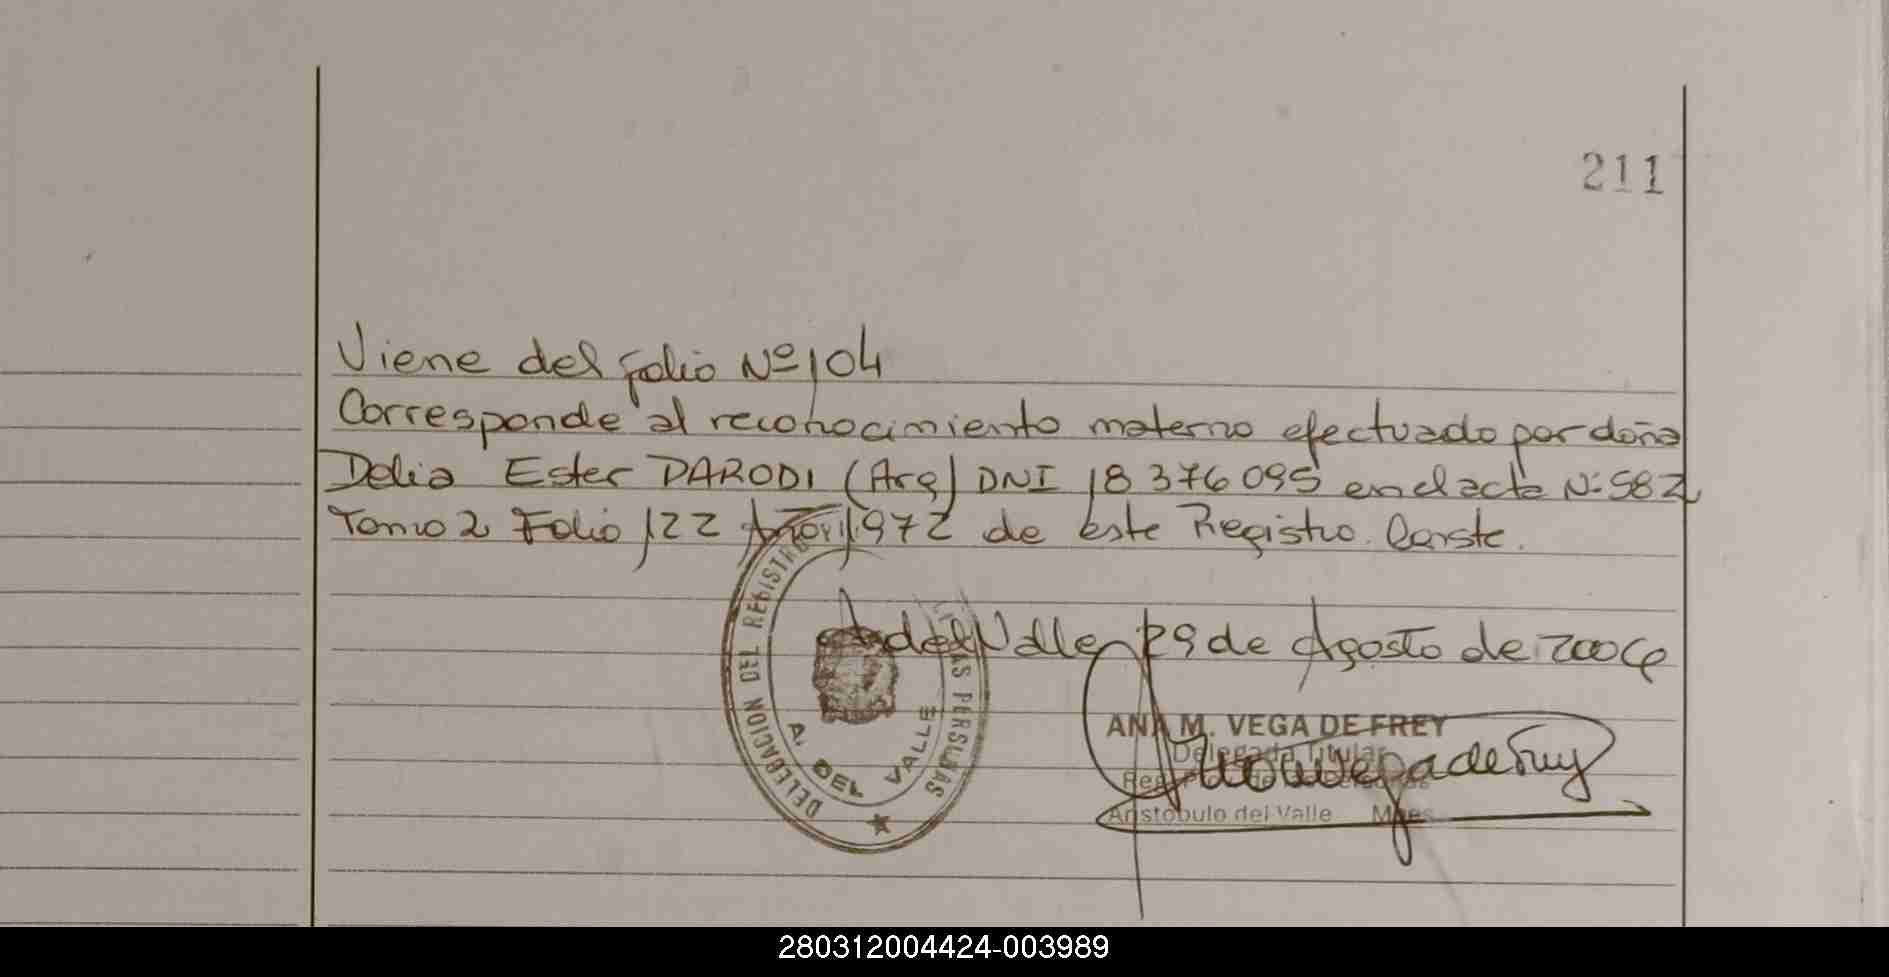 211
Viene del folio Nº 104
Corresponde al reconocimiento materno efectuado por doña
Delia Ester PARODI (Arg) DNI 18376095 en el acta Nº 582
Tomo 2 Folio 122 Año 1972 de este Registro. Conste.
A. del Valle, 29 de Agosto de 2006
DELEGACION DEL REGISTRO LAS PERSONAS
A. DEL VALLE
ANA M. VEGA DE FREY
Delegada Titular
Aristobulo del Valle Mnes
280312004424-003989